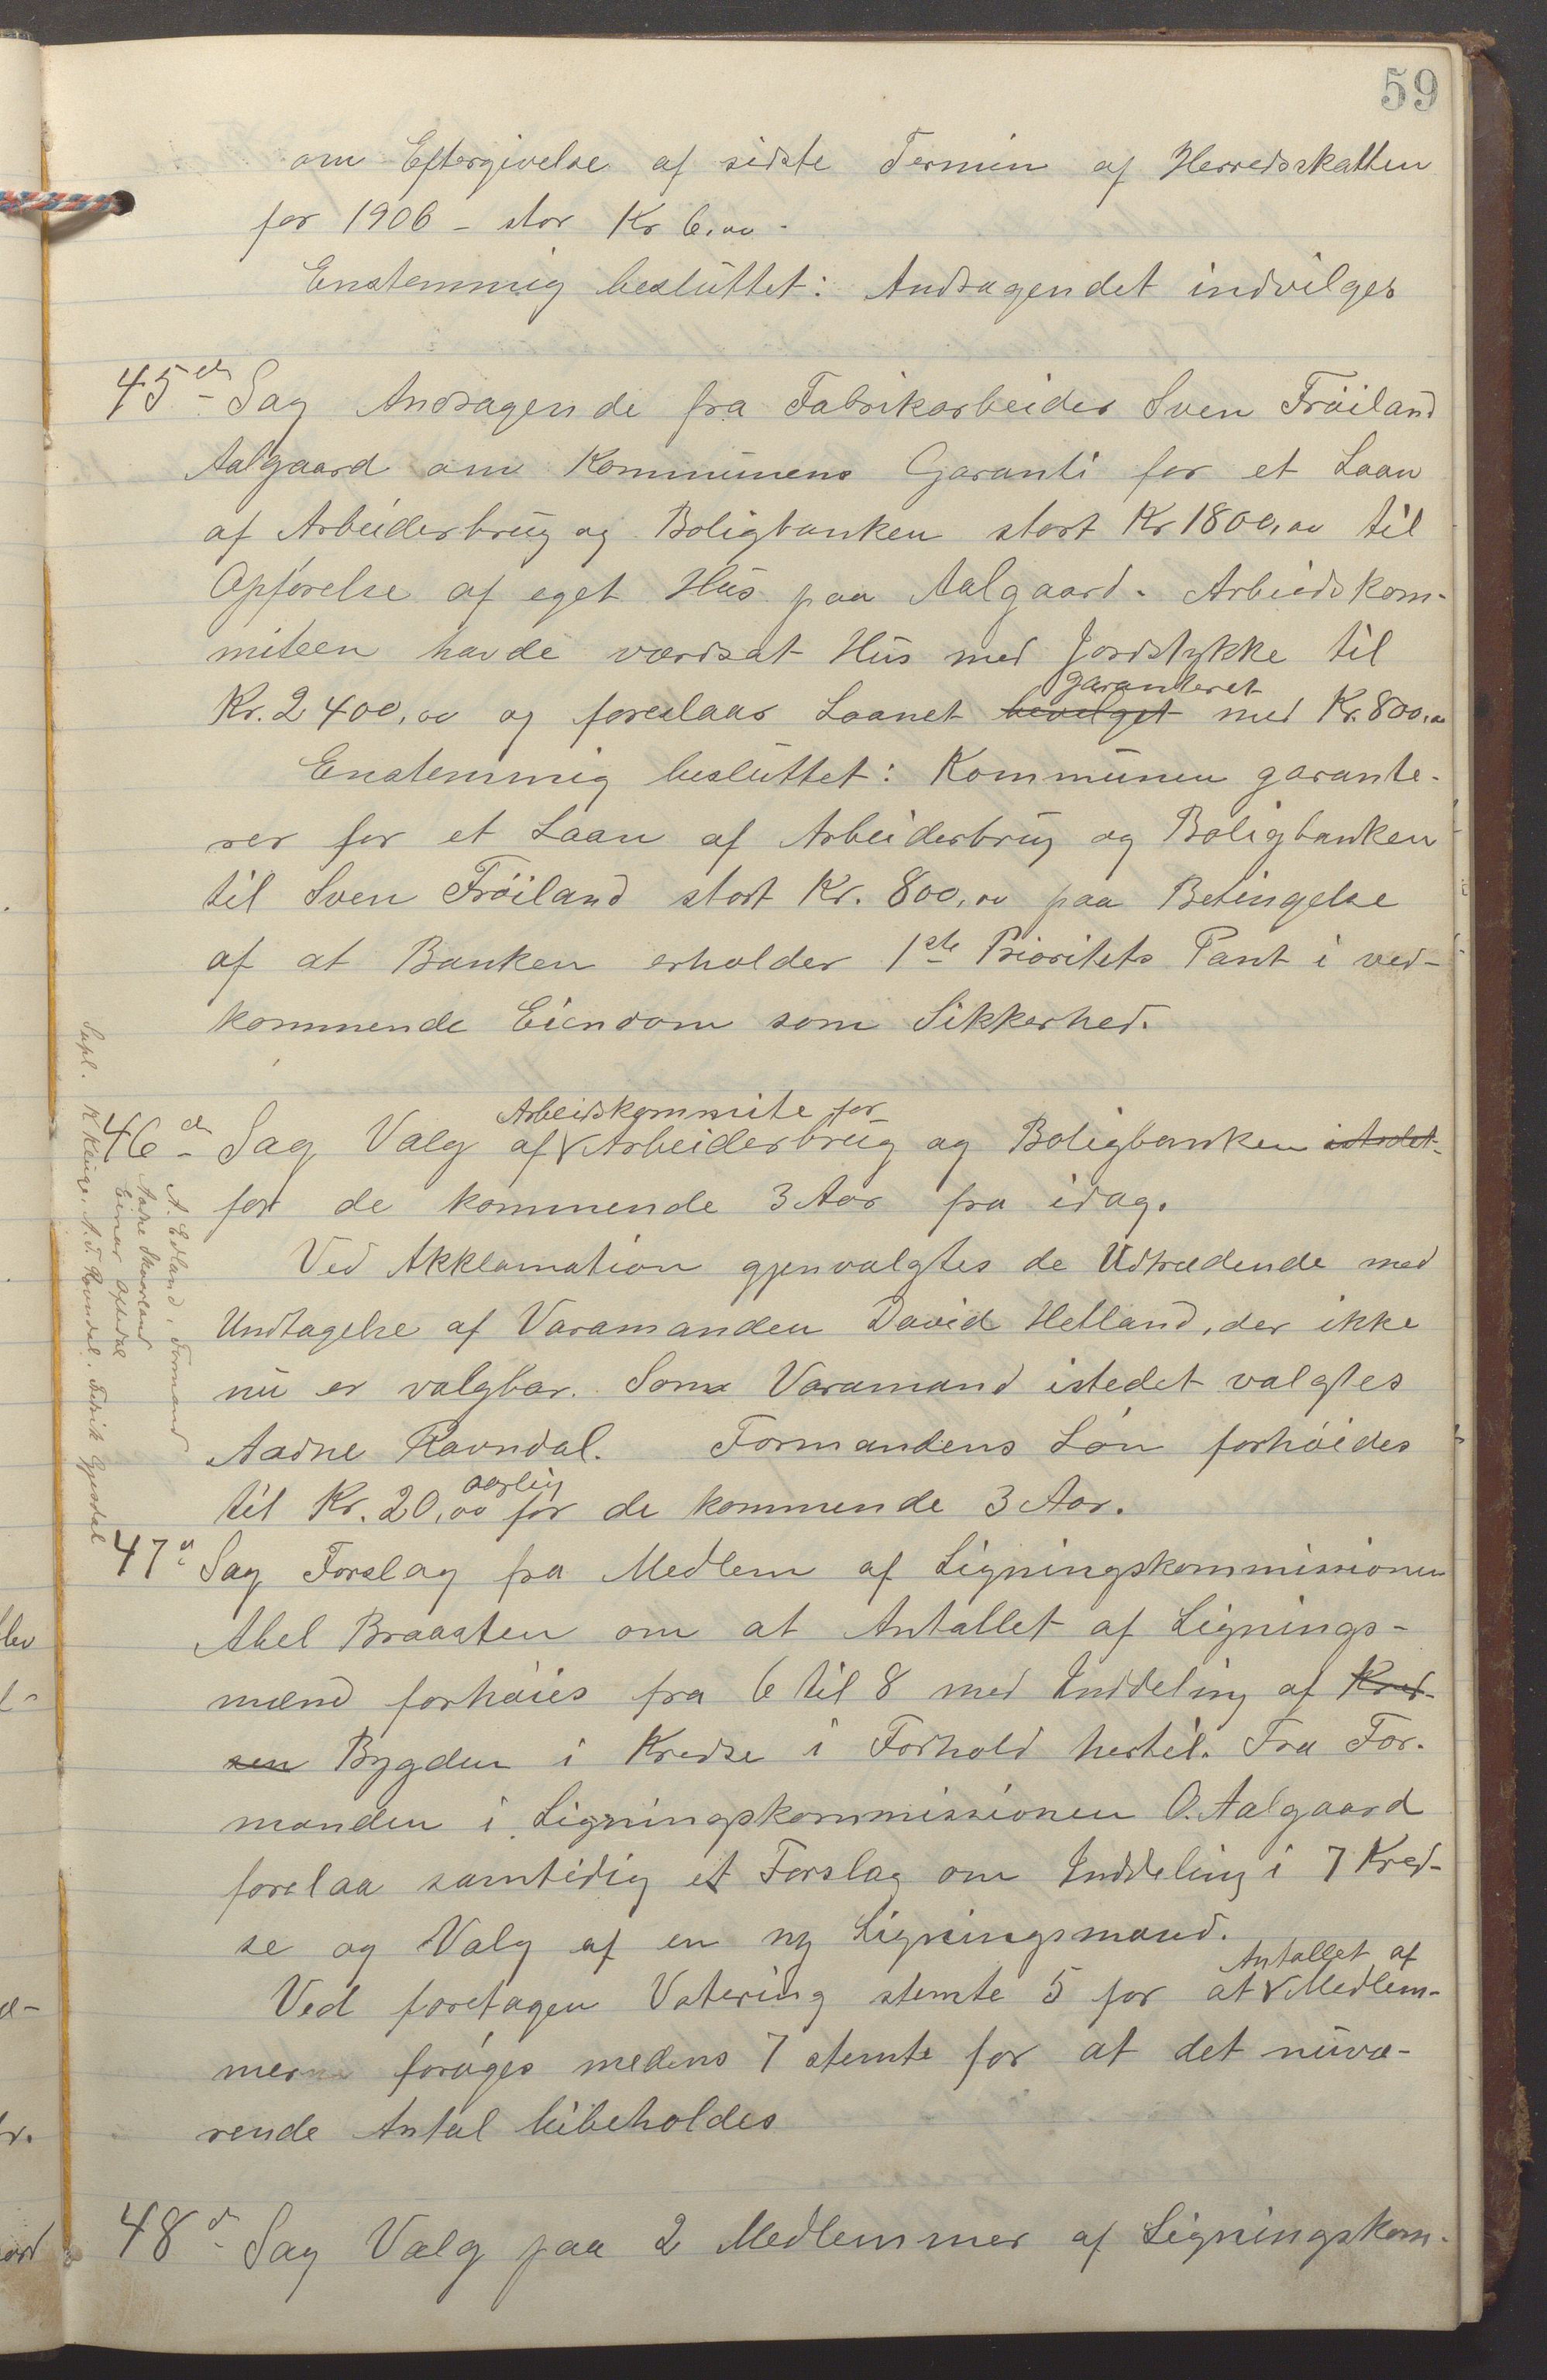 59
om Eftergivelse af sidste Termin af Herredsskatten
for 1906 - stor Kr 6,00 -
Enstemmig besluttet: Andragendet indvilges
45de Sag Andragende fra Fabrikarbeider Sven Fröiland
Aalgaard om Kommunens Garanti for et Laan
af Arbeiderbrug og Boligbanken stort Kr 1800,00 til
Opførelse af eget Hus paa Aalgaard. Arbeidskom-
miteen havde værdsat Hus med Jordstykke til
garanteret
Kr. 2400,00 og foreslaar Laanet bevilget med Kr. 800,00
Enstemmig besluttet: Kommunen garante-
rer for et Laan af Arbeiderbrug og Boligbanken
til Sven Fröiland stort Kr. 800,00 paa Betingelse
af at Banken erholder 1ste Prioritets Pant i ved-
kommende Eiendom som Sikkerhed.
Arbeidskommite for
46de Sag Valg af Arbeiderbrug og Boligbanken istedet-
for de kommende 3 Aar fra idag.
Ved Akklamation gjenvalgtes de Udtrædende med
Undtagelse af Varamanden David Helland, der ikke
nu er valgbar. Som Varamand istedet valgtes
Aadne Ravndal. Formandens Løn forhöides
aarlig
til Kr. 20,00 for de kommende 3 Aar.
A. Edland, Formand
Aadne Skurland
Einar Oftedal
Supl. K Kluge. A. T. Ravndal. Fredrik Gjesdal
47de Sag Forslag fra Medlem af Ligningskommissionen
Abel Braasten om at Antallet af Lignings-
mænd forhøies fra 6 til 8 med Inddeling af Kred-
sen Bygden i Kredse i Forhold hertil. Fra For-
manden i Ligningskommissionen O. Aalgaard
forelaa samtidig et Forslag om Inddeling i 7 Kred-
se og Valg af en ny Ligningsmand.
Antallet af
Ved foretagen Votering stemte 5 for at Medlem-
merne forøges medens 7 stemte for at det nuvæ-
rende Antal bibeholdes
48de Sag Valg paa 2 Medlemmer af Ligningskom-